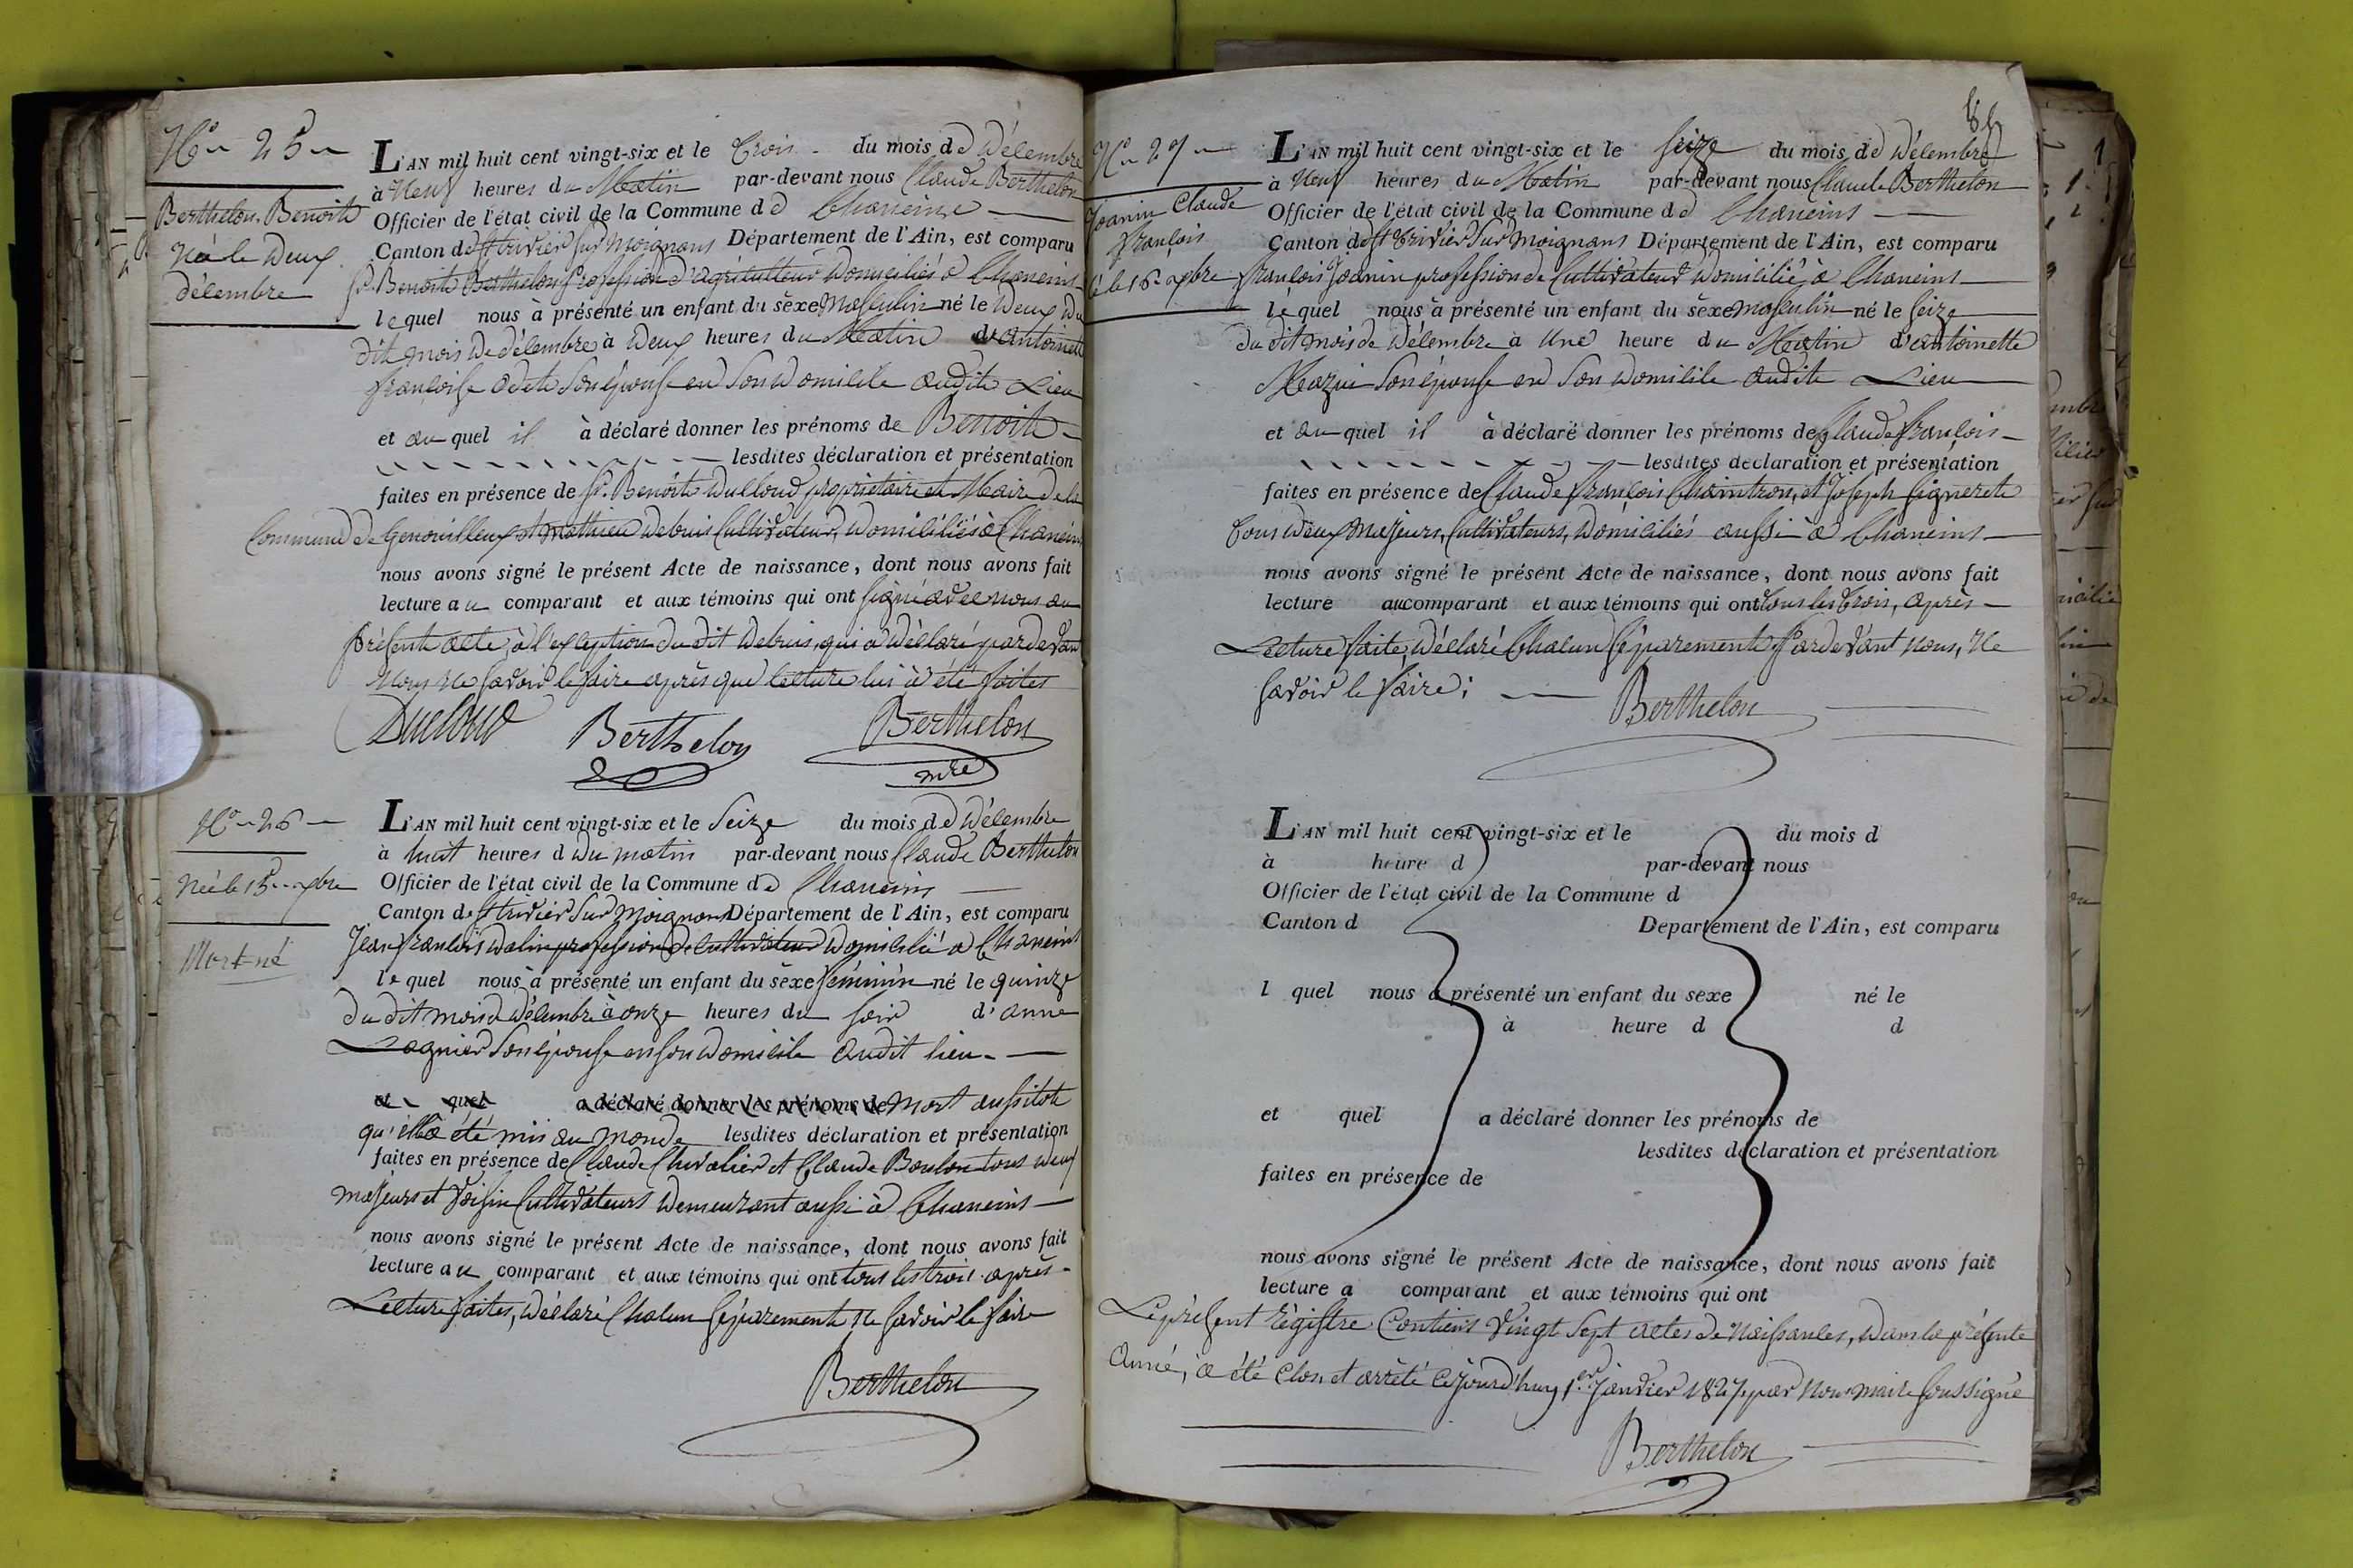 N° 25
Berthelon Benoit
Né le Deux
décembre
L'AN mil huit cent vingt-six et le Trois du mois de Décembre
à Neuf heures du Matin par-devant nous Claude Berthelon
Officier de l'état civil de la Commune de Chaneins
Canton de St trivier sur Moignans Département de l'Ain, est comparu
Sr. Benoit Berthelon profession d'agriculteur Domicilié à Chaneins
lequel nous à présenté un enfant du sèxe Masculin né le Deux du
dit mois de décembre à Deux heures du Matin d'antoinette
françoise Odet son épouse en son Domicile audit Lieu
et au quel il à déclaré donner les prénoms de Benoit
lesdites déclaration et présentation
faites en présence de Sr. Benoit Ducloud propriétaire et Maire de la
Commune de Genouilleux et Mathieu Debuis Cultivateur, Domiciliés à Chaneins
nous avons signé le présent Acte de naissance, dont nous avons fait
lecture au comparant et aux témoins qui ont signé avec nous au
présent acte, à l'exception du dit Debuis, qui a Déclaré pardevant
Nous ne savoir le faire après que lecture lui à été faites
Ducloud Berthelon Berthelon
mre
N° 26
Née le 15 xbre
Mort-né
L'AN mil huit cent vingt-six et le Seize du mois de Décembre
à huit heures d du matin par-devant nous Claude Berthelon
Officier de l'état civil de la Commune de Chaneins
Canton de St trivier sur Moignans Département de l'Ain, est comparu
Jean francois Dalin profession de Cultivateur Domicilié à Chaneins
lequel nous à présenté un enfant du sèxe féminin né le quinze
du dit mois de Décembre à onze heures du soir d'anne
Lagnier son épouse en son Domicile audit lieu
et quel a déclaré donner les prénoms de Mort aussitot
qu'elle a été mis au monde lesdites déclaration et présentation
faites en présence de Claude Chevalier et Claude Boulon tous deux
majeurs et Voisin Cultivateurs Demeurant aussi à Chaneins
nous avons signé le présent Acte de naissance, dont nous avons fait
lecture au comparant et aux témoins qui ont tous les trois après
Lecture faites, Déclaré Chacun séparement Ne savoir le faire
Berthelon
N° 27
Joanin Claude
françois
né le 16 xbre
L'AN mil huit cent vingt-six et le Seize du mois de Décembre
à Neuf heures du Matin par-devant nous Claude Berthelon
Officier de l'état civil de la Commune de Chaneins
Canton de St Trivier sur Moignans Département de l'Ain, est comparu
françois Joanin profession de Cultivateur Domicilié à Chaneins
lequel nous à présenté un enfant du sèxe masculin né le Seize
du dit mois de Décembre à Une heure du Matin d'antoinette
Mazui son épouse en son Domicile audit Lieu
et au quel il à déclaré donner les prénoms de Claude françois
lesdites declaration et présentation
faites en présence de Claude françois Chaintron, et Joseph Signeret
Tous Deux Majeurs, Cultivateurs, Domiciliés aussi à Chaneins
nous avons signé le présent Acte de naissance, dont nous avons fait
lecture au comparant et aux témoins qui ont tous les trois, après
Lecture faite, Déclaré Chacun séparement Pardevant Nous, Ne
savoir le faire;
Berthelon
L'AN mil huit cent vingt-six et le du mois d
à heure d par-devant nous
Officier de l'état civil de la Commune d
Canton d Departement de l'Ain, est comparu
l quel nous a présenté un enfant du sexe né le
à heure d d
et quel a déclaré donner les prénoms de
lesdites déclaration et présentation
faites en présence de
nous avons signé le présent Acte de naissance, dont nous avons fait
lecture a comparant et aux témoins qui ont
Le présent régistre Contient Vingt Sept actes de Naissances, Dans la présente
Anné, à été Clos et arrété Cejourd'huy 1er Janvier 1827 par Nous maire soussigné
Berthelon